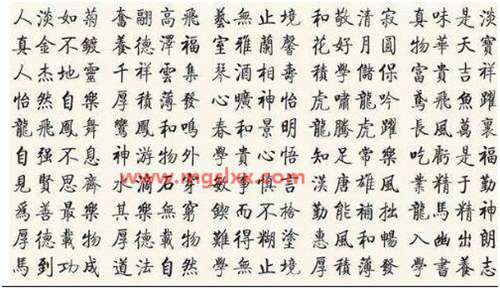 人淡如菊 奮翮高飛 藝無止境 和敬清寂 真味是淡
真金不鍍 養德澤福 室雅蘭馨 花好月圓 物華天寶
人杰地靈 千祥雲集 琴酒相壽 積學儲保 富貴吉祥
怡然自樂 厚積薄發 曠神怡 虎嘯龍吟 鳶飛魚躍
龍飛鳳舞 鸞鳳和鳴 春和景明 龍騰虎躍 長風萬裏
自强不息 神游物外 學貴心悟 知足常樂 吃虧是福
www.mgslxx.com
見賢思齊 水滴石穿 敏事慎言 漢唐雄風 業精於勤
爲善最樂 其樂無窮 鍥而不捨 勤能補拙 龍馬精神
厚德載物 厚德載物 難得糊塗 惠風和暢 入幽出朗
馬到功成 道法自然 學無止境 厚積薄發 學書養志